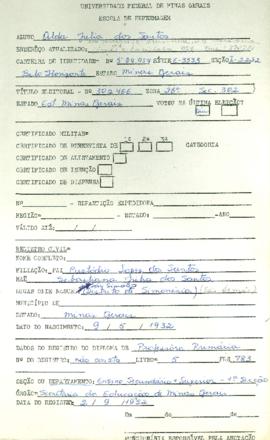 UNIVERSIDADE FEDERAL DE MINAS GERAIS
ESCOLA DE ENFERMAGEM
ALUNO Alda Julia dos Santos
ENDEREÇO ATUALIZADO:
CARTEIRA DE IDENTIDADE- Nº 584.954 SÉRIE 6-3333 SEÇÃO I-2232
Belo Horizonte ESTADO Minas Gerais
TÍTULO ELEITORAL - Nº ZONA Sec. 302
ESTADO Minas Gerais VOTOU NA ÚLTIMA ELEIÇÃO?
CERTIFICADO MILITAR=
CERTIFICADO DE RESERVISTA DE 1a 2a 3a CATEGORIA
CERTIFICADO DE ALISTAMENTO
CERTIFICADO DE ISENÇÃO
CERTIFICADO DE DISPENSA
Nº - REPARTIÇÃO EXPEDIDORA
REGIÃO= - ESTADO: -ANO
VÁLIDO ATÉ / /
REGISTRO CIVIL=
NOME COMPLETO:
FILIAÇÃO: PAI Custódio Lopes dos Santos
MÃE Sebastiana Julia dos Santos
LUGAR ONDE NASCEU (Distrito de Simonésia)
MUNICÍPIO DE
ESTADO: Minas Gerais
DATO DO NASCIMENTO: 9 / 5 / 1932
DADOS DO REGISTRO DO DIPLOMA DE Professôra Primária
Nº DO REGISTRO: não consta LIVRO= 5 FLS 783
SEÇÃO OU DEPARTAMENTO: Ensino Secundário e Superior - 1ª Secção
ÓRGÃO= Secretaria da Educação de Minas Gerais
DATA DO REGISTRO: 2 / 9 / 1952
de de
FUNCIONÁRIA RESPONSÁVEL PELA ANOTAÇÃO